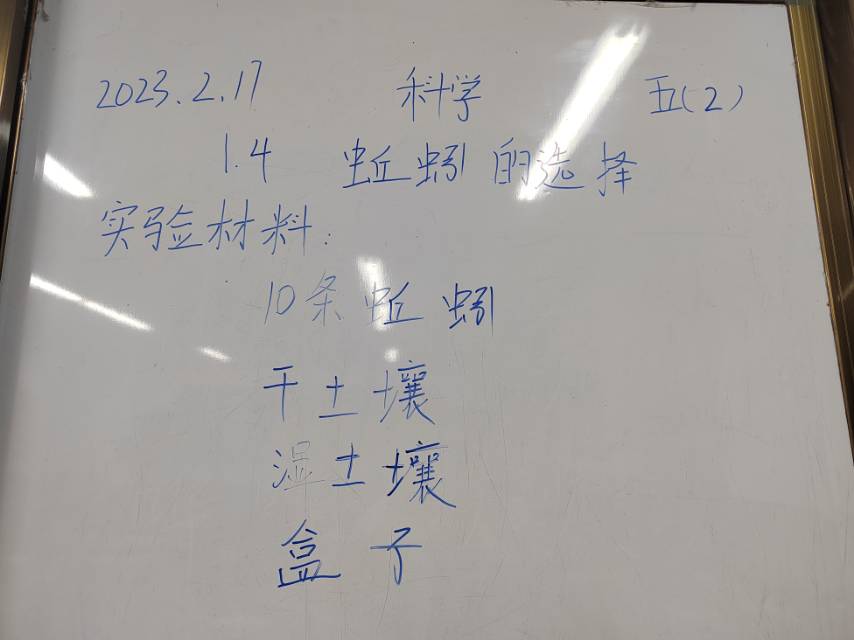 2023.2.17 科学 五(2)
1.4 蚯蚓的选择
实验材料:
10条蚯蚓
干土壤
湿土壤
盒子